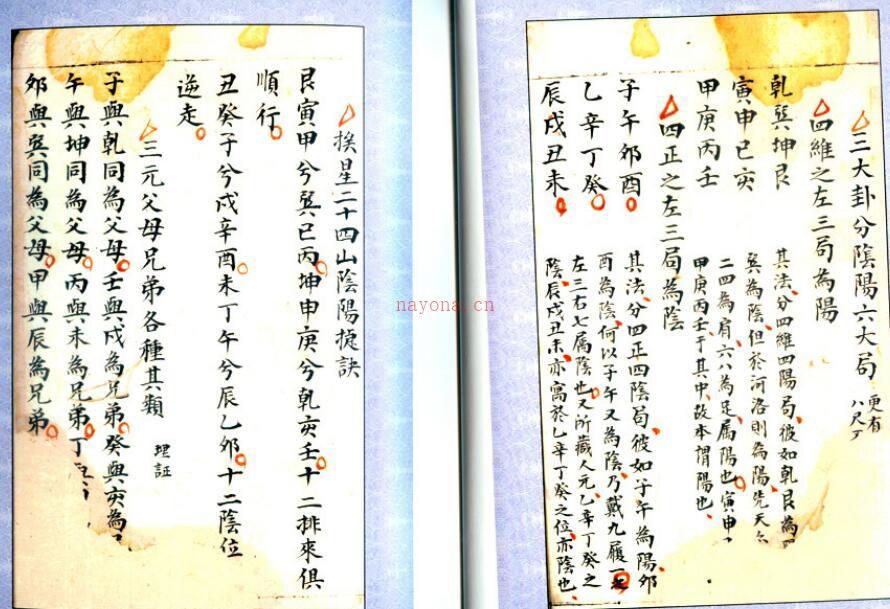 三大卦分陰陽六大局 更有
八尺丁
四維之左三局為陽
乾巽坤艮
寅申巳亥
甲庚丙壬
其法分四維四陽局彼如乾艮為
巽為陰但於河洛則為陽先天
二四為肩六八為足属陽也寅申
甲庚丙壬于其中故本謂陽也
四正之左三局為陰
子午夘酉
乙辛丁癸
辰戌丑未
其法分四正四陰局彼如子午為陽夘
酉為陰何以子午又為陰乃戴九履一
左三右七属陰也又所藏人元乙辛丁癸之
陰辰戌丑未亦寓於乙辛丁癸之位亦陰也
挨星二十四山陰陽捷訣
艮寅甲兮巽巳丙坤申庚兮乾亥壬十二排來俱
順行
丑癸子兮戌辛酉未丁午兮辰乙夘十二陰位
逆走
三元父母兄弟各種其類 理証
子與乾同為父母壬與戌為兄弟癸與亥為
午與坤同為父母丙與未為兄弟丁
夘與巽同為父母甲與辰為兄弟
nayona.cn